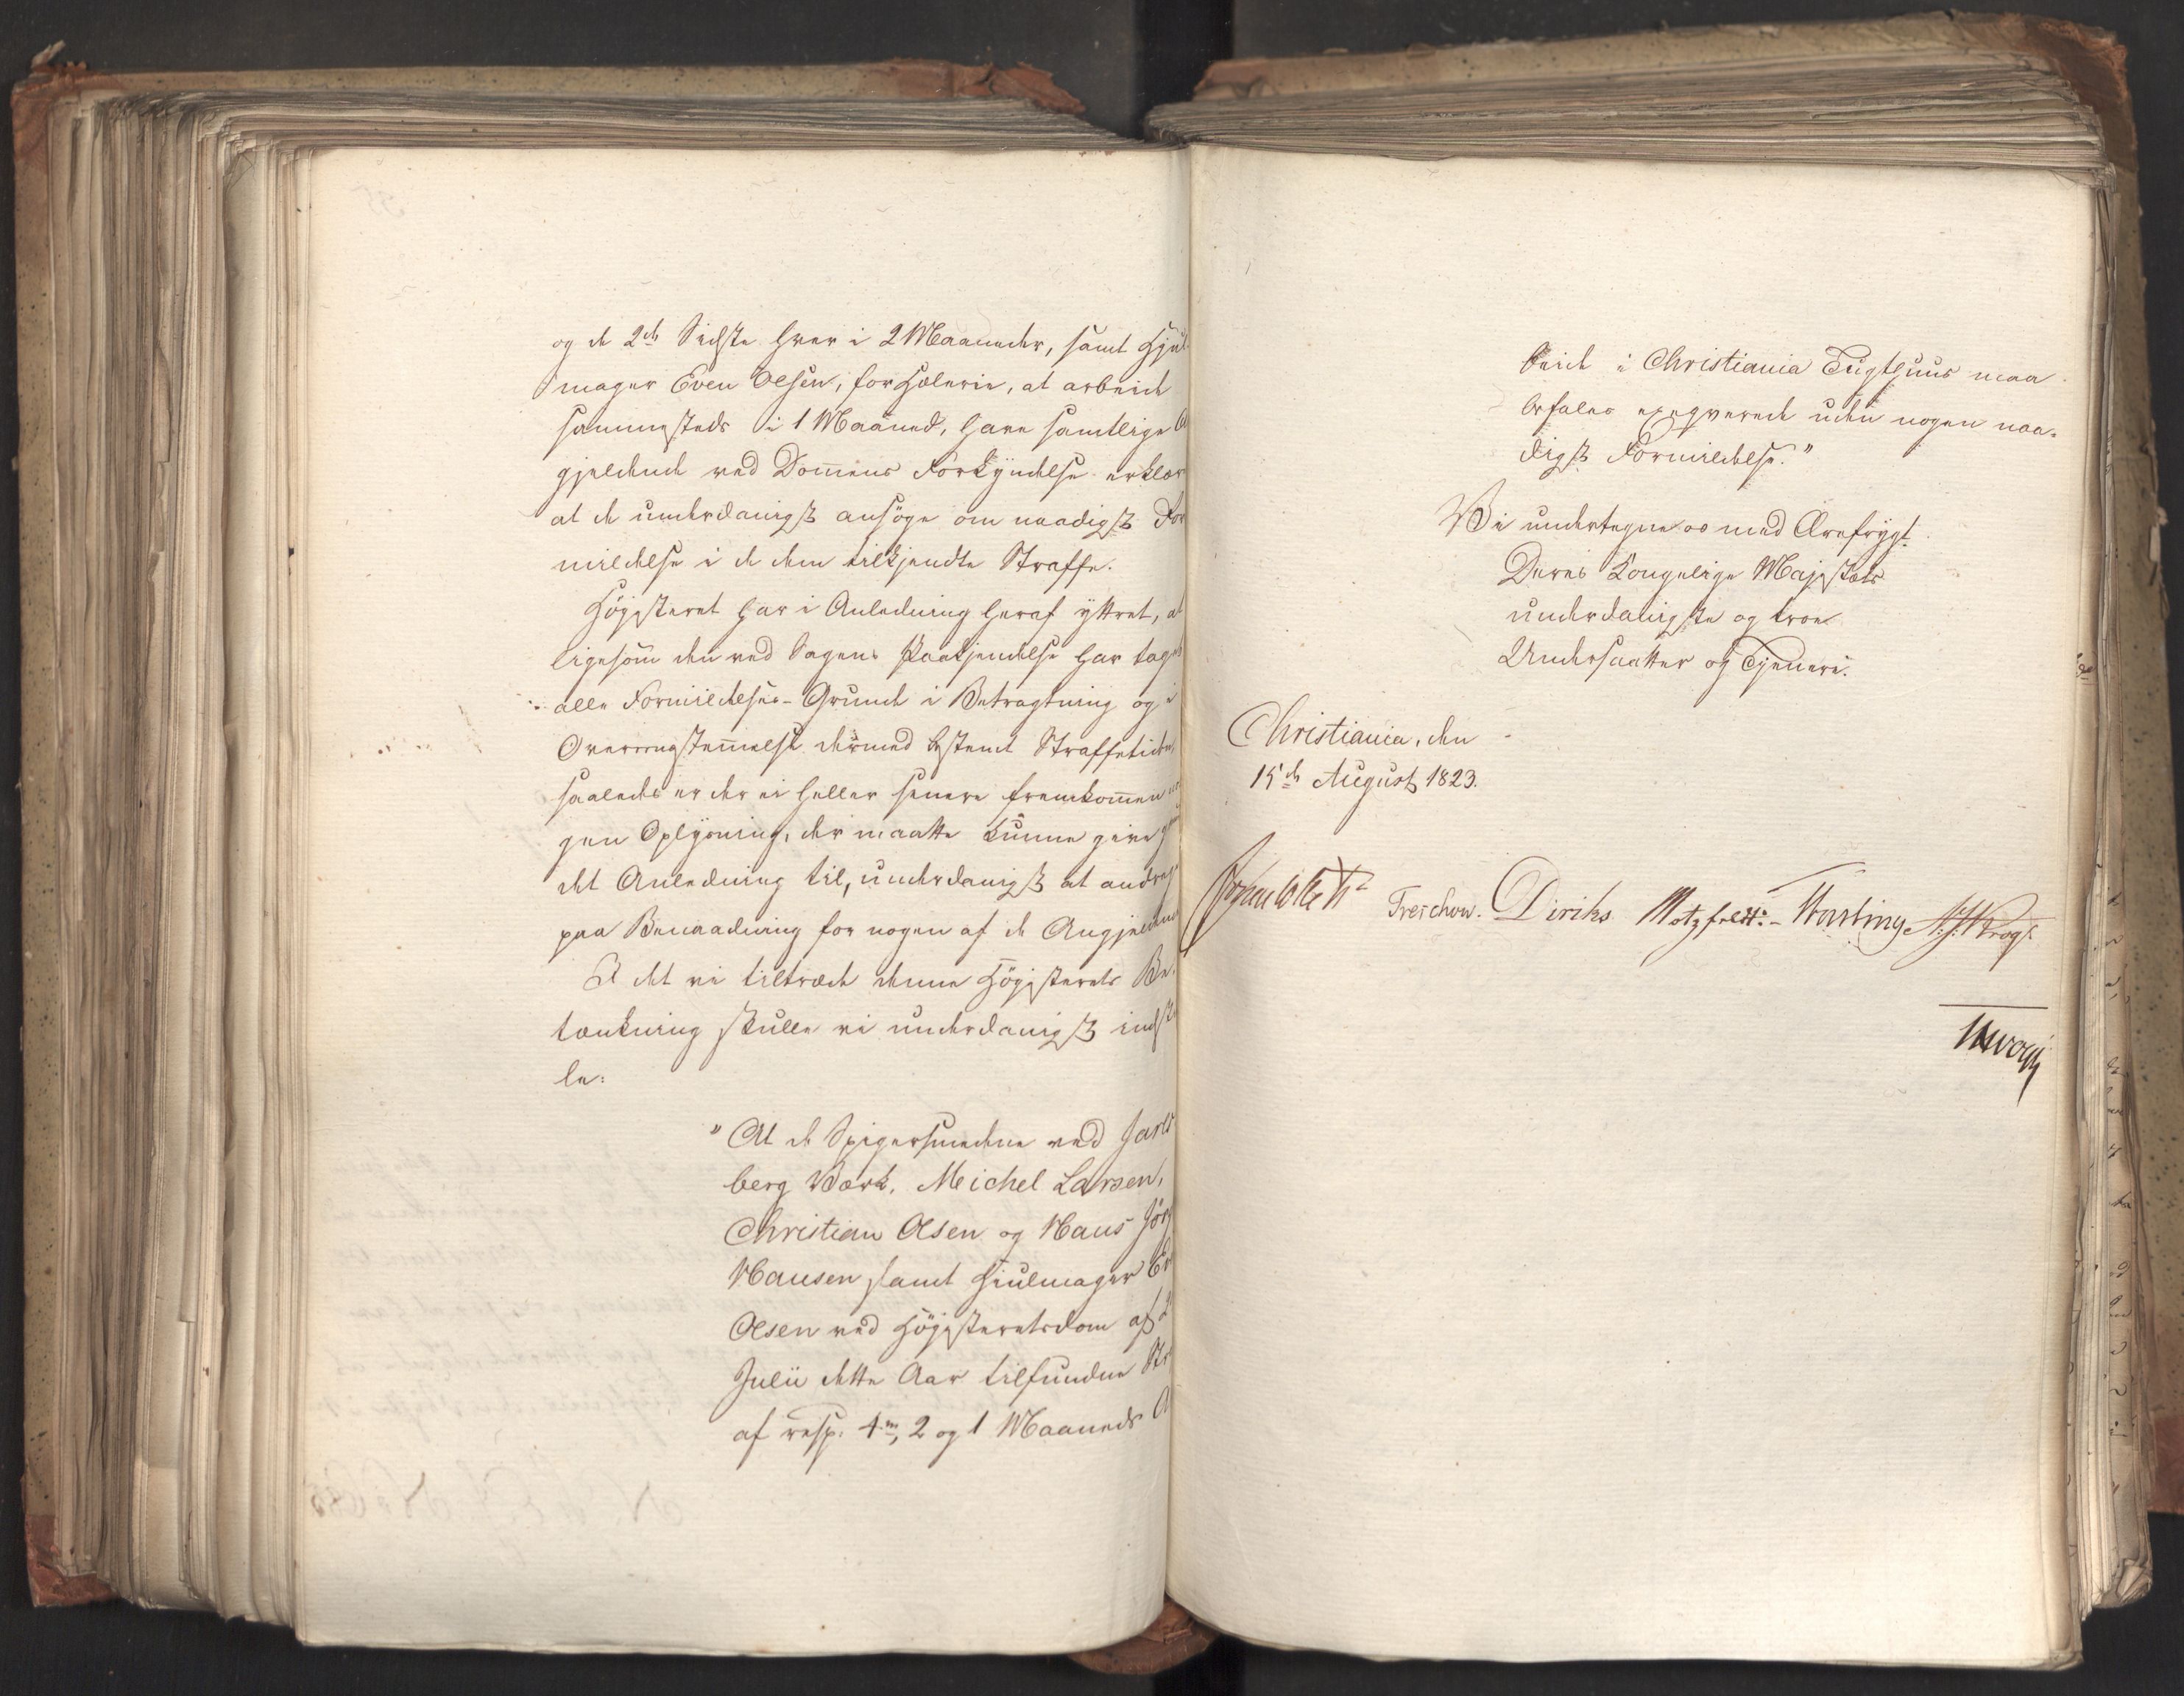 og de 2de Sidste hver i 2 Maaneder, samt Hjul
mager Even Olsen, for Hæleri, at arbeide
sammesteds i 1 Maaned, have samtlige A
gjeldende ved Dommens Forkyndelse erklær
at de underdanigst ansøge om naadigst For
mildelse i de dem tilkjendte Straffe.
Høiesteret har i Anledning heraf yttret, at
ligesom den ved Sagens Paakjendelse har taget
alle Formildelses-Grunde i Betragtning og i
Overeensstemmelse dermed bestemt Straffetiden,
saaledes er der ei heller senere fremkommen no
gen Oplysning, der maatte kunne give
det Anledning til, underdanigst at andrage
paa Benaadning for nogen af de Angjeldende
I det vi tiltræde denne Høiesterets Be-
tænkning skulle vi underdanigst indstil
le:
"At de Spigersmedene ved Jarls
berg Værk, Michel Larsen,
Christian Olsen og Hans Jör
Hansen samt Hiulmager Ev
Olsen ved Høiesteretsdom af 2
Julii dette Aar tilfundne Str
af resp: 4re, 2 og 1 Maaneds A
beide i Christiania Tugthuus maa
befales exeqverede uden nogen naa-
digst Formildelse."
Vi undertegne os med Ærefrygt
Deres Kongelige Majestæts
underdanigste og troe
Undersaatter og Tjenere.
Christiania, den
15de August 1823.
Treschow. Diriks Motzfeldt. Hasting N. J. Krogh